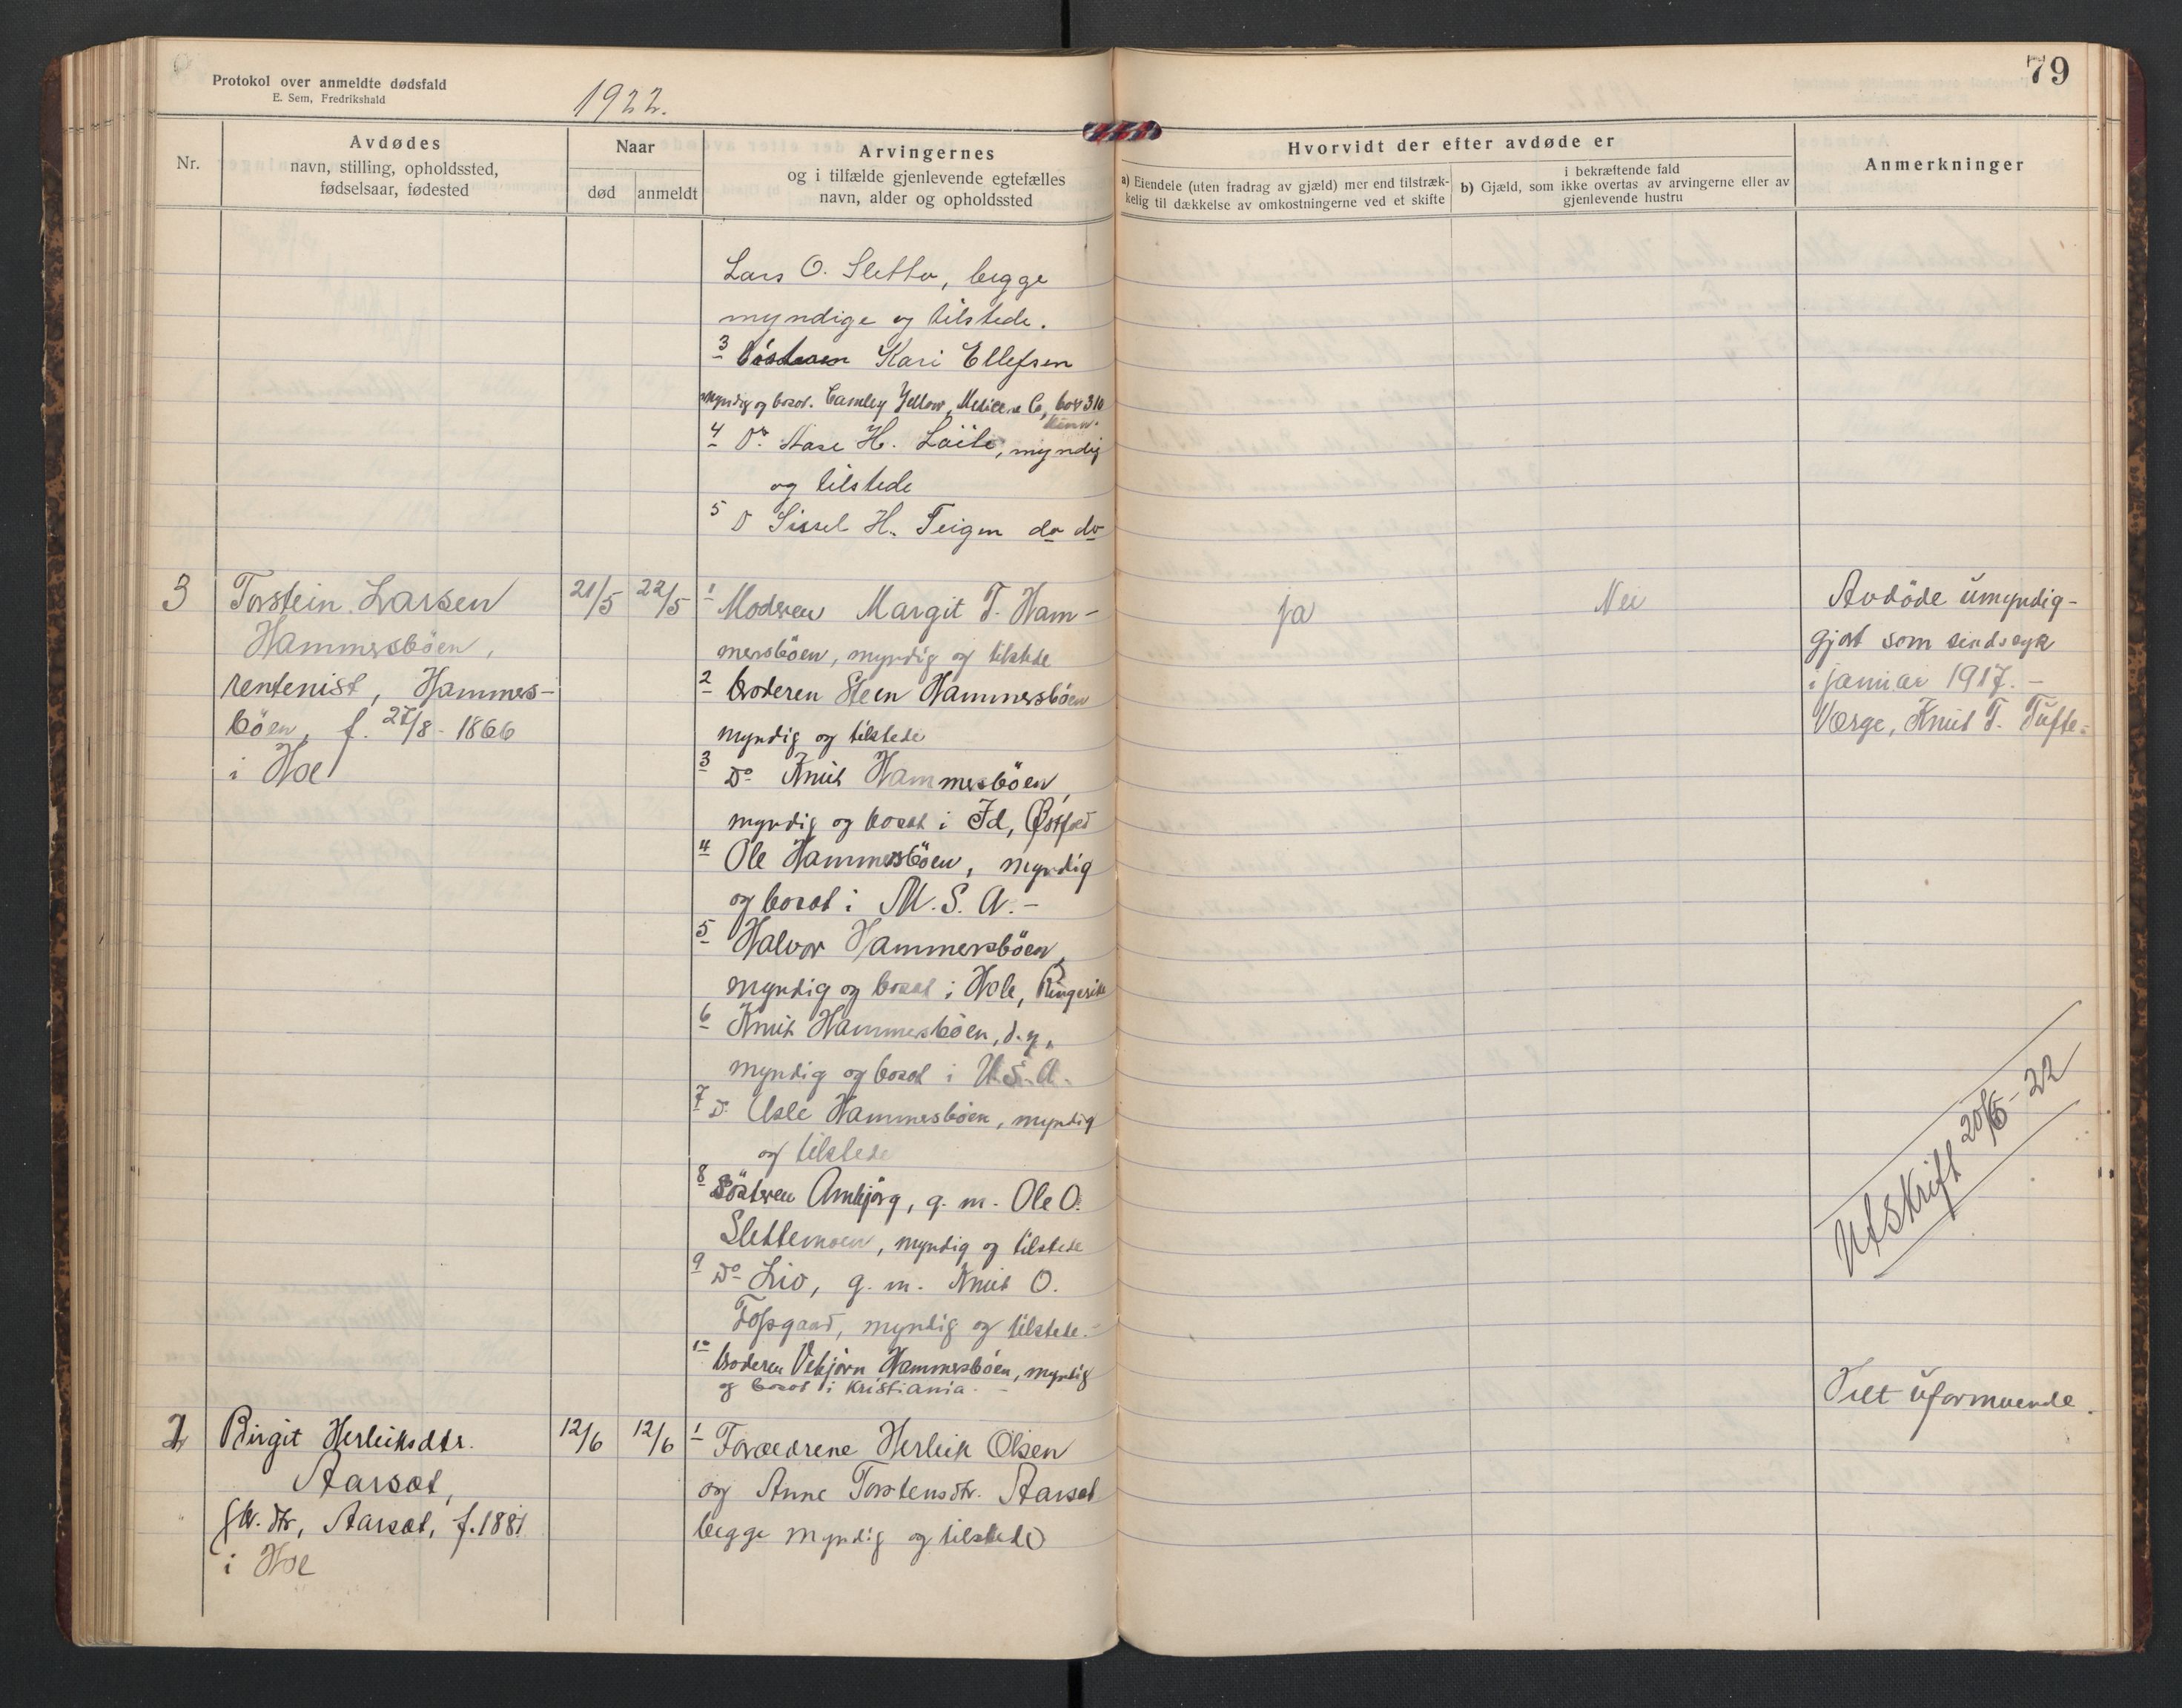 Protokol over anmeldte dødsfald
E. Sem, Fredrikshald
1922.
79
Nr.
Avdødes
navn, stilling, opholdssted,
fødselsaar, fødested
Naar
død
anmeldt
Arvingernes
og i tilfælde gjenlevende egtefælles
navn, alder og opholdssted
Hvorvidt der efter avdøde er
a) Eiendele (uten fradrag av gjæld) mer end tilstræk-
kelig til dækkelse av omkostningerne ved et skifte
i bekræftende fald
b) Gjæld, som ikke overtas av arvingerne eller av
gjenlevende hustru
Anmerkninger
Lars O. Sletto, begge
myndige og tilstede.
3 Kari Ellefsen
myndig og bosat. Yellow, Medicine Co, box 310
Minn.
4 Do. Aase H. myndig
og tilstede
5 D Sissel H. Teigen do do
3
Torstein Larsen
Hammersböen,
rentenist, Hammers-
böen, f. 27/8 - 1866
i Hol
21/5
22/5
1 Moderen Margit T. Ham-
mersböen, myndig og tilstede
2 broderen Steen Hammersböen
myndig og tilstede
3 Do Knut Hammersböen,
myndig og bosat i Id, Østfold
4 Ole Hammersböen, myndig
og bosat i U.S.A.-
5 Halvor Hammersböen,
myndig og bosat i Hole, Ringerike
6 Knut Hammersböen, d.y.,
myndig og bosat i U.S.A.
7 D. Asle Hammersböen, myndig
og tilstede
8 Sösteren Ambjörg, g. m. Ole O.
Slettemoen, myndig og tilstede
9 Do Liv, g. m. Knut O.
Tofsgaard, myndig og tilstede.-
10 broderen Vebjörn Hammersböen, myndig
og bosat i Kristiania. -
ja
Nei
Avdöde umyndig-
gjort som sindssyk
i januar 1917. -
Værge, Knut T. Tufte.
Utskrift 20/6 - 22
2
Birgit Herleiksdtr.
Aarset,
gbr. dtr, Aarset, f. 1881
i Hol
12/6
12/6
1 Forældrene Herleik Olsen
og Anne Torstensdtr. Aarset
begge myndig og tilstede
Helt uformuende.